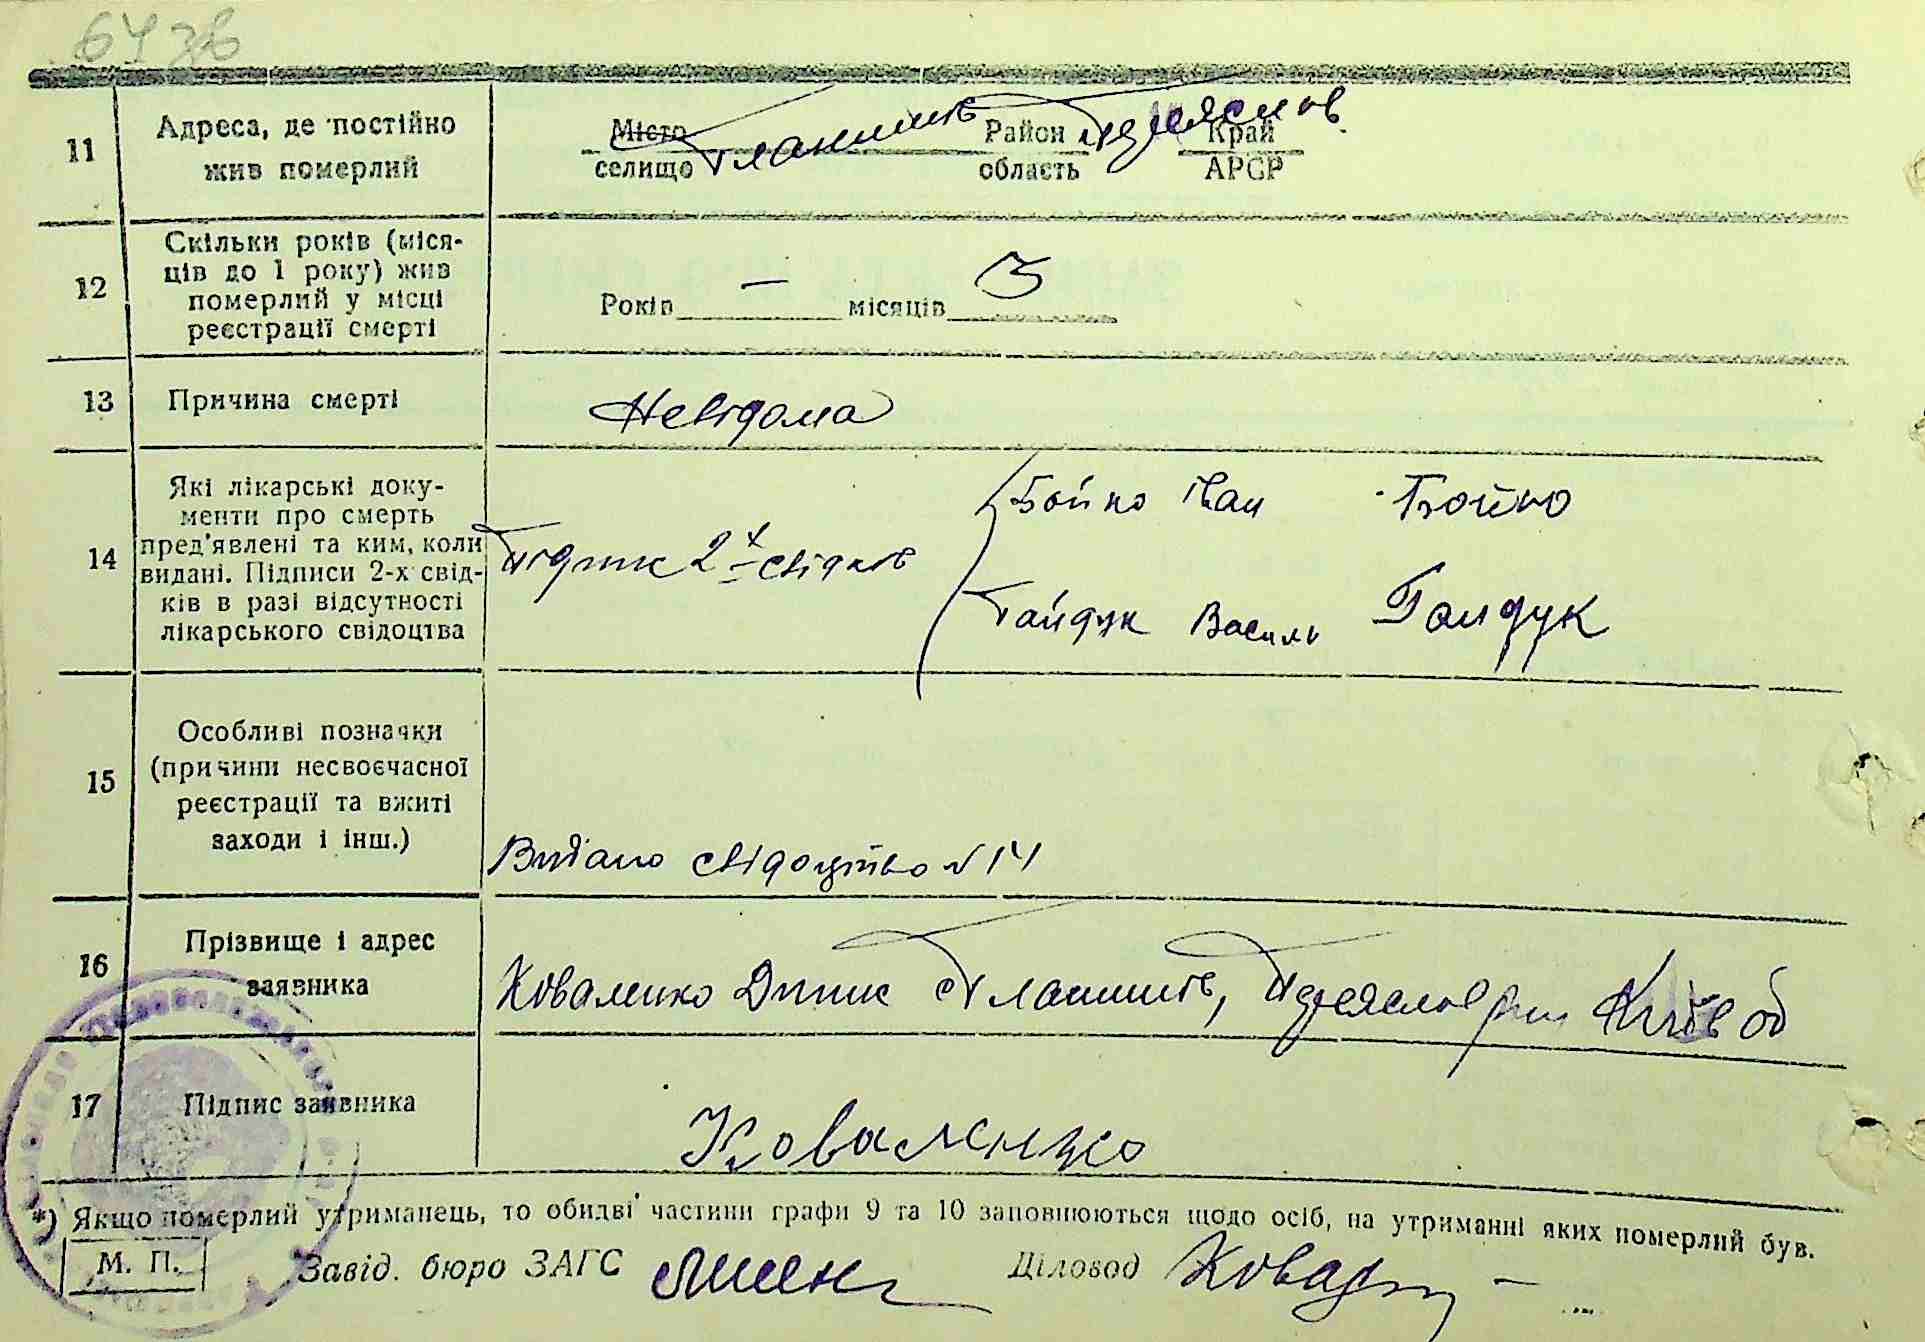 11
Адреса, де постійно
жив померлий
Місто Район Край
селище область АРСР
12
Скільки років (міся-
ців до 1 року) жив
померлий у місці
реєстрації смерті
Років — місяців 3
13
Причина смерті
Невідома
14
Які лікарські доку-
менти про смерть
пред'явлені та ким, коли
видані. Підписи 2-х свід-
ків в разі відсутності
лікарського свідоцтва
Підпис 2х свідків
Бойко Іван Бойко
Гайдук Василь Гайдук
15
Особливі позначки
(причини несвоєчасної
реєстрації та вжиті
заходи і інш.)
Видано свідоцтво N 14
16
Прізвище і адрес
заявника
Коваленко Київ об
17
Підпис заявника
Коваленко
*) Якщо померлий утриманець, то обидві частини графи 9 та 10 заповнюються щодо осіб, на утриманні яких померлий був.
М. П.
Завід. бюро ЗАГС Діловод